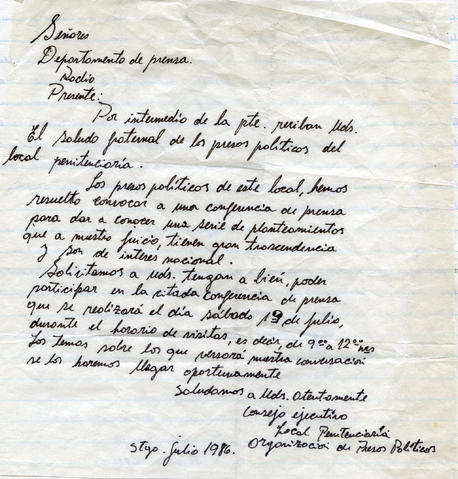 Señores
Departamento de prensa.
Radio
Presente:
Por intermedio de la pte. reciban Uds.
El saludo fraternal de los presos políticos del
local penitenciaría.
Los presos políticos de este local, hemos
resuelto convocar a una conferencia de prensa
para dar a conocer una serie de planteamientos
que a nuestro juicio, tienen gran trascendencia
y son de interes nacional.
Solicitamos a Uds. tengan a bien, poder
participar en la citada conferencia de prensa
que se realizará el día sábado 19 de julio,
durante el horario de visitas, es decir, de 9:00 a 12:00 hrs
Los temas sobre los que versará nuestra conversación
se los haremos llegar oportunamente
Saludamos a Uds. atentamente
Consejo ejecutivo
Local Penitenciaría
Organización de Presos Políticos
Stgo. julio 1986.